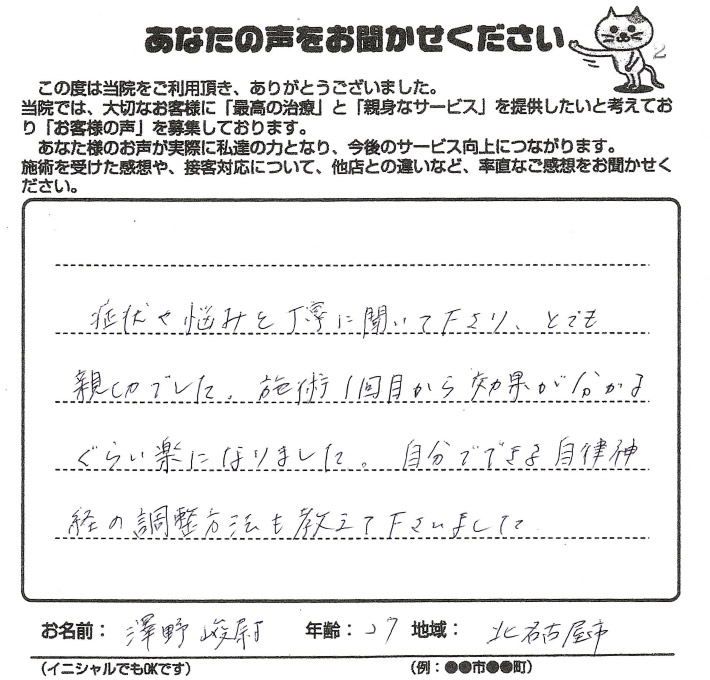 あなたの声をお聞かせください
2
この度は当院をご利用頂き、ありがとうございました。
当院では、大切なお客様に「最高の治療」と「親身なサービス」を提供したいと考えてお
り「お客様の声」を募集しております。
あなた様のお声が実際に私達の力となり、今後のサービス向上につながります。
施術を受けた感想や、接客対応について、他店との違いなど、率直なご感想をお聞かせく
ださい。
症状や悩みを丁寧に聞いて下さり、とても
親切でした。施術1回目から効果が分かる
ぐらい楽になりました。自分でできる自律神
経の調整方法も教えて下さいました
お名前: 澤野峻尉 年齢: 27 地域: 北名古屋市
(イニシャルでもOKです) (例:●●市●●町)